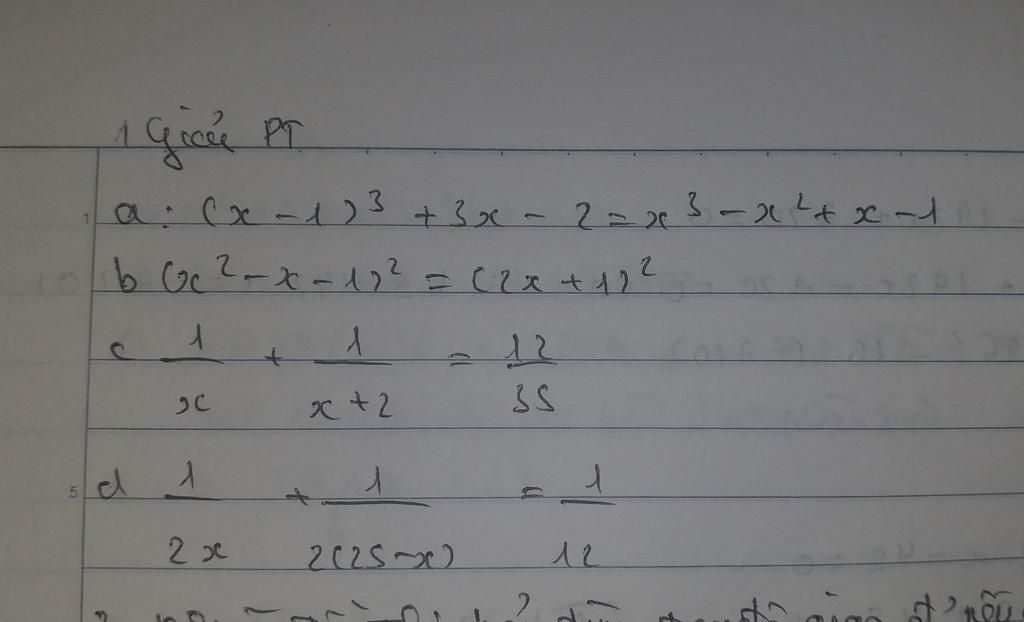 1 Giải PT
a: (x - 1)³ + 3x - 2 = x³ - x² + x - 1
b (x² - x - 1)² = (2x + 1)²
c 1/x + 1/(x + 2) = 12/35
5
d 1/2x + 1/2(25 - x) = 1/12